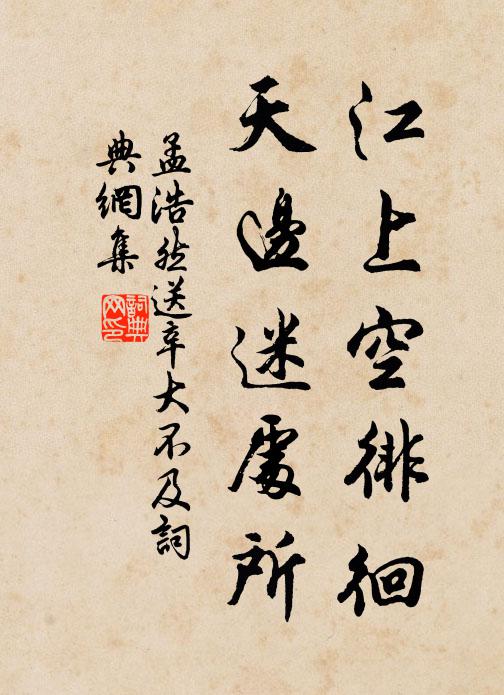 江上空徘徊
天邊迷處所
孟浩然送辛大不及詞
典網集
詞典
网印